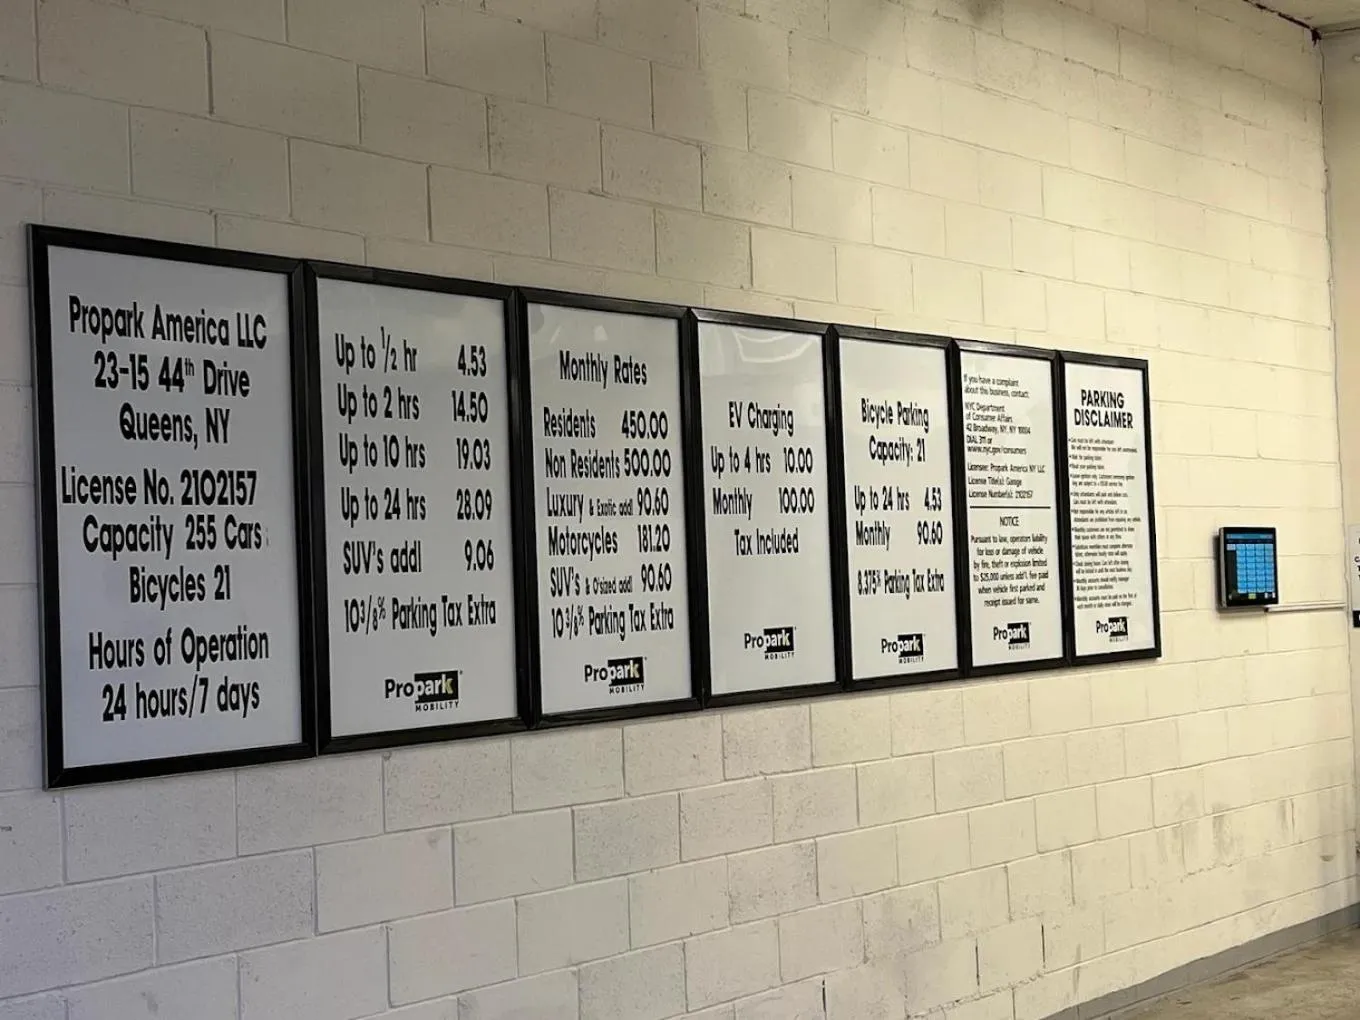 Propark America LLC
23-15 44th Drive
Queens, NY
License No. 2102157
Capacity 255 Cars
Bicycles 21
Hours of Operation
24 hours/7 days
Up to ½ hr 4.53
Up to 2 hrs 14.50
Up to 10 hrs 19.03
Up to 24 hrs 28.09
SUV's addl 9.06
10 3/8% Parking Tax Extra
Propark
MOBILITY
Monthly Rates
Residents 450.00
Non Residents 500.00
Luxury & Exotic addl 90.60
Motorcycles 181.20
SUV's & O'sized addl 90.60
10 3/8% Parking Tax Extra
Propark
MOBILITY
EV Charging
Up to 4 hrs 10.00
Monthly 100.00
Tax Included
Propark
MOBILITY
Bicycle Parking
Capacity: 21
Up to 24 hrs 4.53
Monthly 90.60
8.375% Parking Tax Extra
Propark
MOBILITY
If you have a complaint
about this business, contact:
NYC Department
of Consumer Affairs
42 Broadway, NY, NY 10004
DIAL 311 or
www.nyc.gov/consumers
Licensee: Propark America NY LLC
License Title(s): Garage
License Number(s): 2102157
NOTICE
Pursuant to law, operators liability
for loss or damage of vehicle
by fire, theft or explosion limited
to $25,000 unless add'l fee paid
when vehicle first parked and
receipt issued for same.
Propark
MOBILITY
PARKING
DISCLAIMER
Propark
MOBILITY